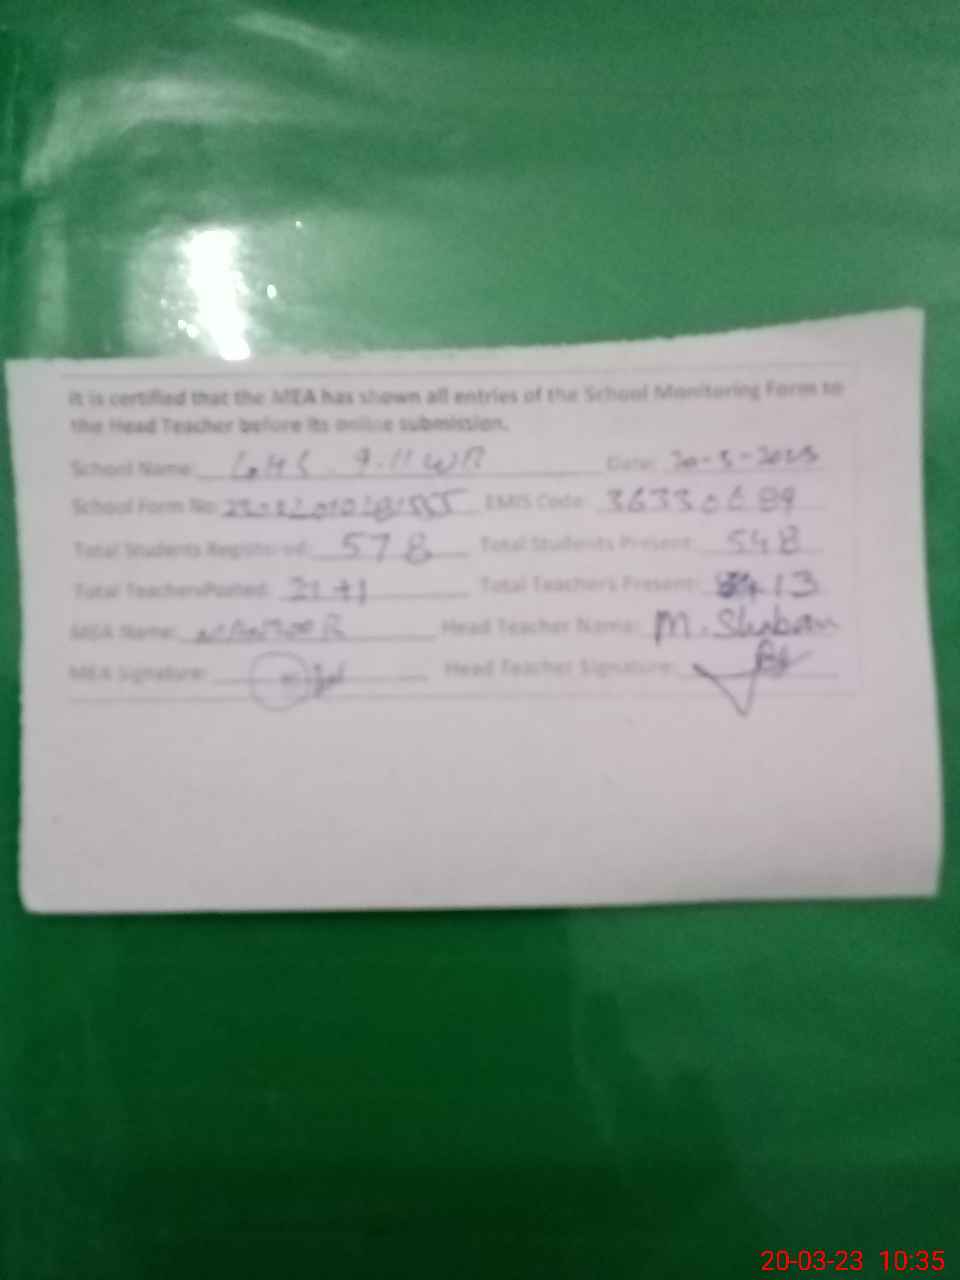 It is certified that the MEA has shown all entries of the School Monitoring Form to
the Head Teacher before its online submission.
School Name: GHS 9-11 WB Date: 20-3-2023
School Form No: EMIS Code: 36330689
Total Students Registered: 578 Total Students Present: 548
Total Teachers Posted: 21+1 Total Teachers Present: 13
MEA Name: Head Teacher Name: M. Shaban
MEA Signature: Head Teacher Signature:
20-03-23 10:35